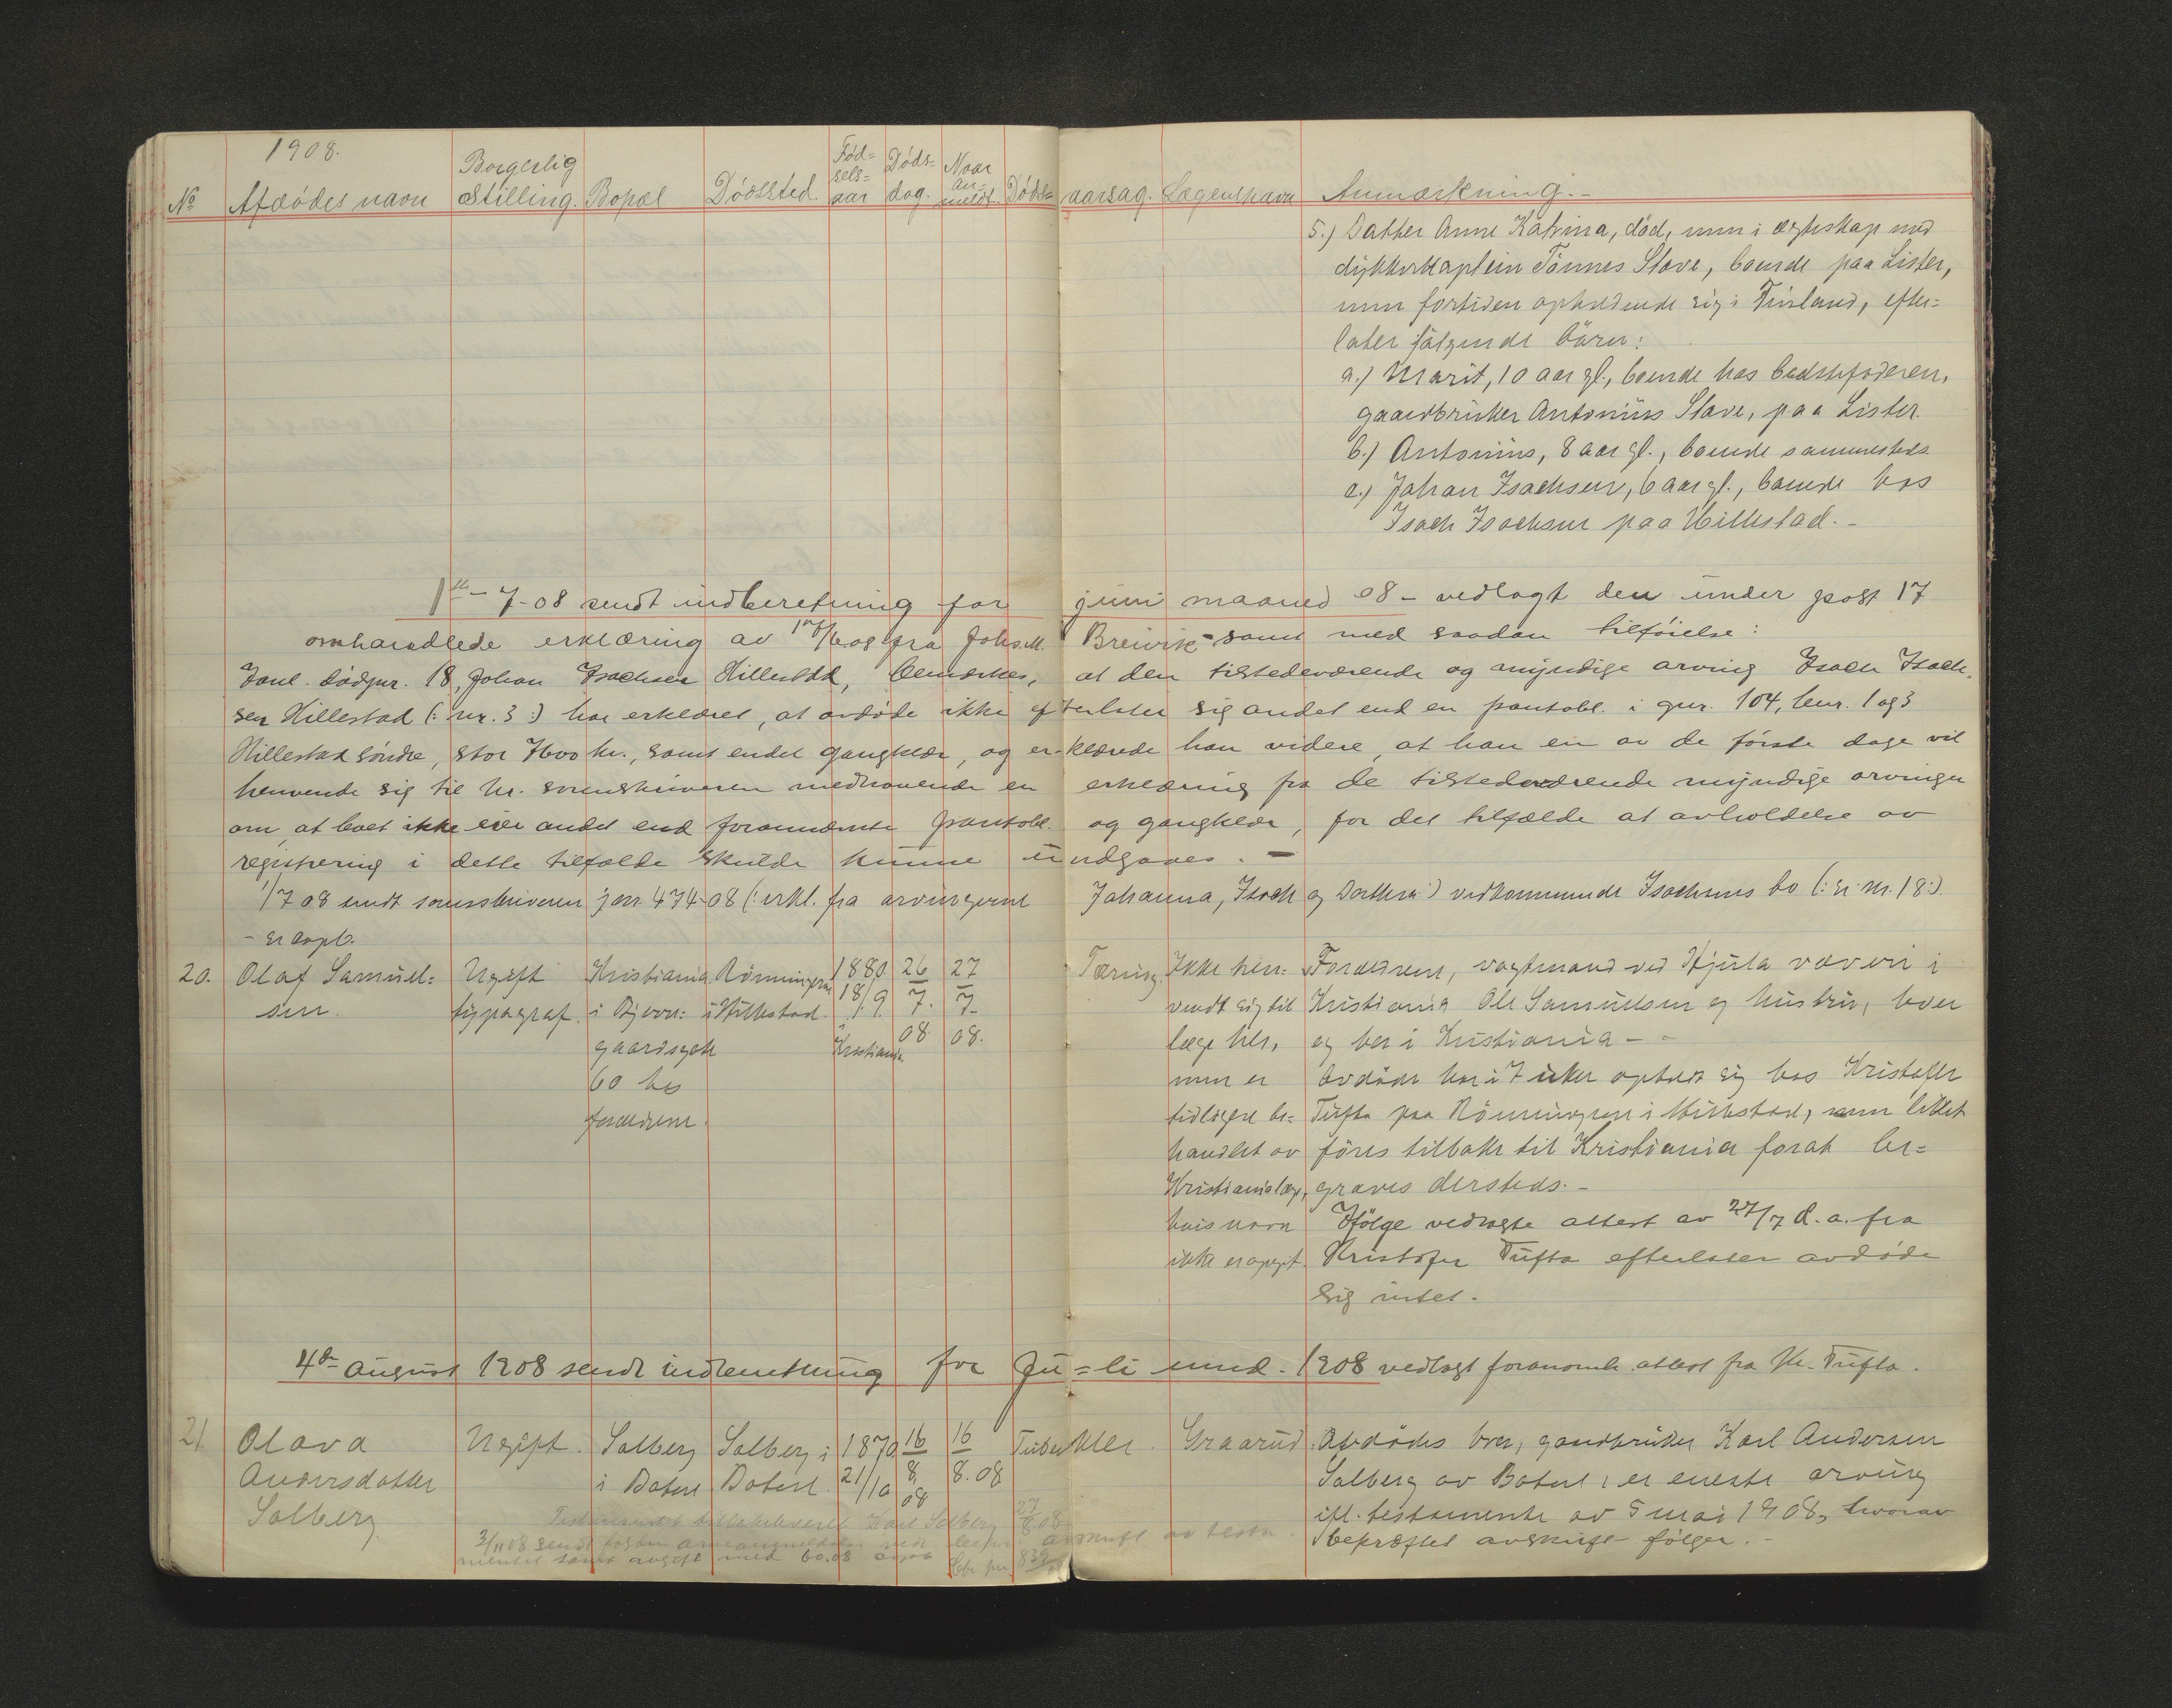 1908.
№ Afdødes navn Borgerlig Stilling. Bopæl Dødssted. Fød=sels=aar Døds=dag. Naar an=meldt. Døds=aarsag. Lægens navn Anmærkning.-
5.) Datter Anne Katrina, død, var i ægteskap med
dykkerkaptein Tönnes Stave, boende paa Lister,
nu for tiden opholdende sig i Finland, efter=
later fölgende börn:
a.) Marit, 10 aar gl., boende hos bedstefaderen,
gaardbruker Antonius Stave, paa Lister.
b.) Antonius, 8 aar gl., boende sammesteds
c.) Johan Isachsen, 6 aar gl., boende hos
Isach Isachsen paa Hillestad.-
1ste-7-08 sendt indberetning for juni maaned 08 - vedlagt den under post 17
omhandlede erklæring av fra Johs. M. Breivik - samt med saadan tilføielse:
dødsnr. 18, Johan Isachsen Hillestad, bemærkes, at den tilstedeværende og myndige arving Isach Isach=
sen Hillestad (: nr. 3 :) har erklæret, at avdøde ikke efterlater sig andet end en pantobl. i gnr. 104, bnr. 1 og 3
Hillestad søndre, stor 7600 kr., samt endel gangklær, og er-klærede han videre, at han en av de første dage vil
henvende sig til hr. sorenskriveren medhavende en erklæring fra de tilstedeværende myndige arvinger
om, at boet ikke eier andet end forannævnte pantobl. og gangklær, for det tilfælde at avholdelse av
registrering i dette tilfælde skulde kunne undgaaes. -
1/7 08 sendt sorenskriveren jnr. 474-08 (: erkl. fra arvingerne Johanna, Isach og Dorthea :) vedkommende Isachsens bo (: nr. 18 :).
20. Olaf Samuel=
sen.
Ugift
typograf.
Kristiania
i Bjerre=
gaardsgate
60 hos
forældrene.
Rönningen
i Hillestad.
1880
18/9.
i
Kristiania
26
7.
08
27
7.
08.
Tæring.
Ikke hen=
vendt sig til
læge her,
men er
tidligere be=
handlet av
Kristianialæge,
hvis navn
ikke er opgit.
Forældrene, vagtmand ved Hjula væveri i
Kristiania Ole Samuelsen og hustru, lever
og bor i Kristiania - -
Avdöde har i 7 uker opholdt sig hos Kristoffer
Tufta paa Rönningen i Hillestad, men liket
föres tilbake til Kristiania forat be=
graves dersteds.-
Ifölge vedlagte attest av 27/7 d. a. fra
Kristofer Tufta efterlater avdøde
sig intet.
4de august 1908 sendt indberetning for Ju=li mnd. 1908 vedlagt forannævnte attest fra Kr. Tufta.
21. Olava
Andersdatter
Solberg
Ugift.
Solberg
i Botne
Solberg i
Botne.
1870
21/10
16
8.
08
16
8. 08
Tuberkler.
Graarud.
Avdødes bror, gaardbruker Karl Andersen
Solberg av Botne, er eneste arving
ifl. testamente av 5 mai 1908, hvorav
bekræftet avskrift følger.-
Testamentet tilbakeleveret Karl Solberg 27/8.08.
3/11 08 sendt avskrift av testa=
mentet samt avgift med 60.08